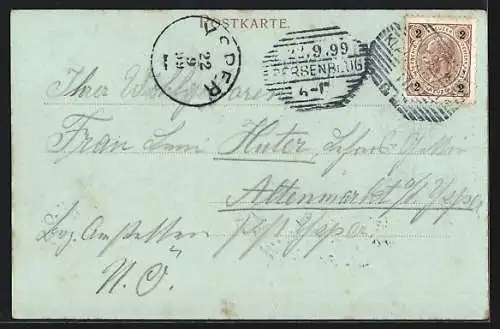 POSTKARTE.
YSPER
22
9
99
22.9.99
PERSENBEUG
2
2
2
2
Ihrer Wohlgeboren
Frau Leni Huter,
Altenmarkt a/ Ysper
Bez. Amstetten Post Ysper
N.Ö.